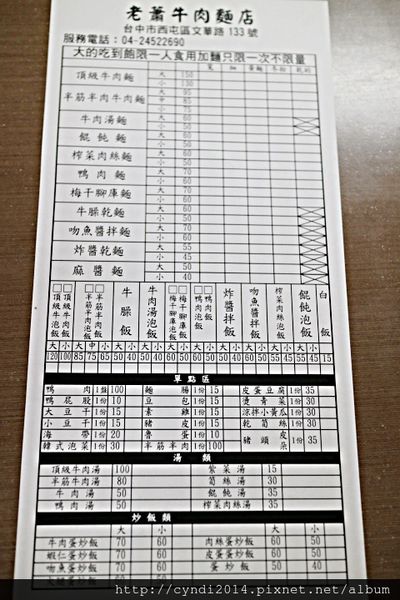 老蕭牛肉麵店
台中市西屯區文華路 133 號
服務電話：04-24522690
大的吃到飽限一人食用加麵只限一次不限量
寬 細 蛋麵 冬粉
頂級牛肉麵 大 150
小 130
半筋半肉牛肉麵 大 95
中 85
小 75
牛肉湯麵 大 60
小 50
餛飩麵 大 60
小 50
榨菜肉絲麵 大 60
小 50
鴨肉麵 大 70
小 60
梅干腳庫麵 大 70
小 60
牛腩乾麵 大 60
小 50
吻魚醬拌麵 大 60
小 50
炸醬乾麵 大 55
小 45
麻醬麵 大 50
小 40
□頂級牛肉飯 □頂級牛泡飯 □半筋半肉飯 □半筋半肉泡飯 牛腩飯 牛肉湯泡飯 □梅干腳庫飯 □梅干腳庫泡飯 □鴨肉飯 □鴨肉泡飯 炸醬拌飯 吻魚醬拌飯 榨菜肉絲泡飯 餛飩泡飯 白飯
大 小 大 中 小 大 小 大 小 大 小 大 小 大 小 大 小 大 小 大 小
120 100 85 75 65 50 40 50 40 60 50 60 50 50 40 50 40 55 45 55 45 15
單點區
鴨肉 1盤 100 麵腸 1份 15 皮蛋豆腐 1份 35
鴨屁股 1份 10 豆包 1份 15 燙青菜 1份 30
大豆干 1份 15 素雞 1份 15 涼拌小黃瓜 1份 30
小豆干 1份 15 豬皮 1份 15 乾筍絲 1份 30
海帶 1份 20 魯蛋 1份 10 豬頭皮 豬頭朵 1份 35
韓式泡菜 1份 30 半筋半肉 1份 100
湯類
頂級牛肉湯 100 紫菜湯 15
半筋牛肉湯 80 筍絲湯 30
牛肉湯 50 餛飩湯 35
鴨肉湯 50 榨菜肉絲湯 35
炒飯類
大 小 大 小
牛肉蛋炒飯 70 60 肉絲蛋炒飯 60 50
蝦仁蛋炒飯 70 60 皮蛋蛋炒飯 60 50
吻魚蛋炒飯 70 60 蛋炒飯 50 40
http://cyndi2014.pixnet.net/album